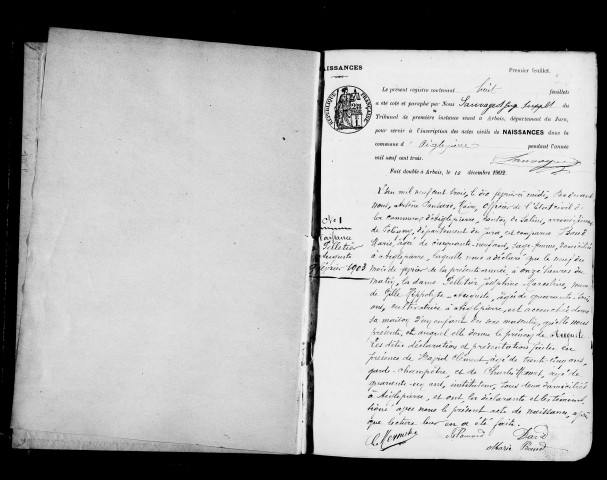 NAISSANCES
Premier feuillet.
Le présent registre contenant huit feuillets
a été coté et paraphé par Nous Sauvageot juge suppl^t du
Tribunal de première instance séant à Arbois, département du Jura,
pour servir à l'inscription des actes civils de NAISSANCES dans la
commune d' Aiglepierre pendant l'année
mil neuf cent trois.
Fait double à Arbois, le 12 décembre 1902.
RÉPUBLIQUE FRANÇAISE
N° 1
Naissance
Pelletier
Auguste
9 février 1903
L'an mil neuf cent trois, le dix février à midi, Par devant
nous, Maire, Officier de l'Etat civil de
la commune d'Aiglepierre, canton de Salins, arrondissement
de Poligny, département du Jura, est comparue
Marie, âgée de cinquante-neuf ans, sage-femme, domiciliée
à Aiglepierre, laquelle nous a déclaré que le neuf du
mois de février de la présente année, à onze heures du
matin, la dame Pelletier Joséphine Marceline, veuve
de Hippolyte-Auguste, âgée de quarante-trois
ans, cultivatrice à Aiglepierre, est accouchée dans
sa maison d'un enfant du sexe masculin, qu'elle nous
présente, et auquel elle donne le prénom de Auguste
Les dites déclaration et présentation faites en
présence de David Clément, âgé de trente-cinq ans,
garde-champêtre, et de Charles, âgé de
quarante-cinq ans, instituteur, tous deux domiciliés
à Aiglepierre, et ont, la déclarante et les témoins,
signé après nous le présent acte de naissance, après
que lecture leur en a été faite.
David
Marie